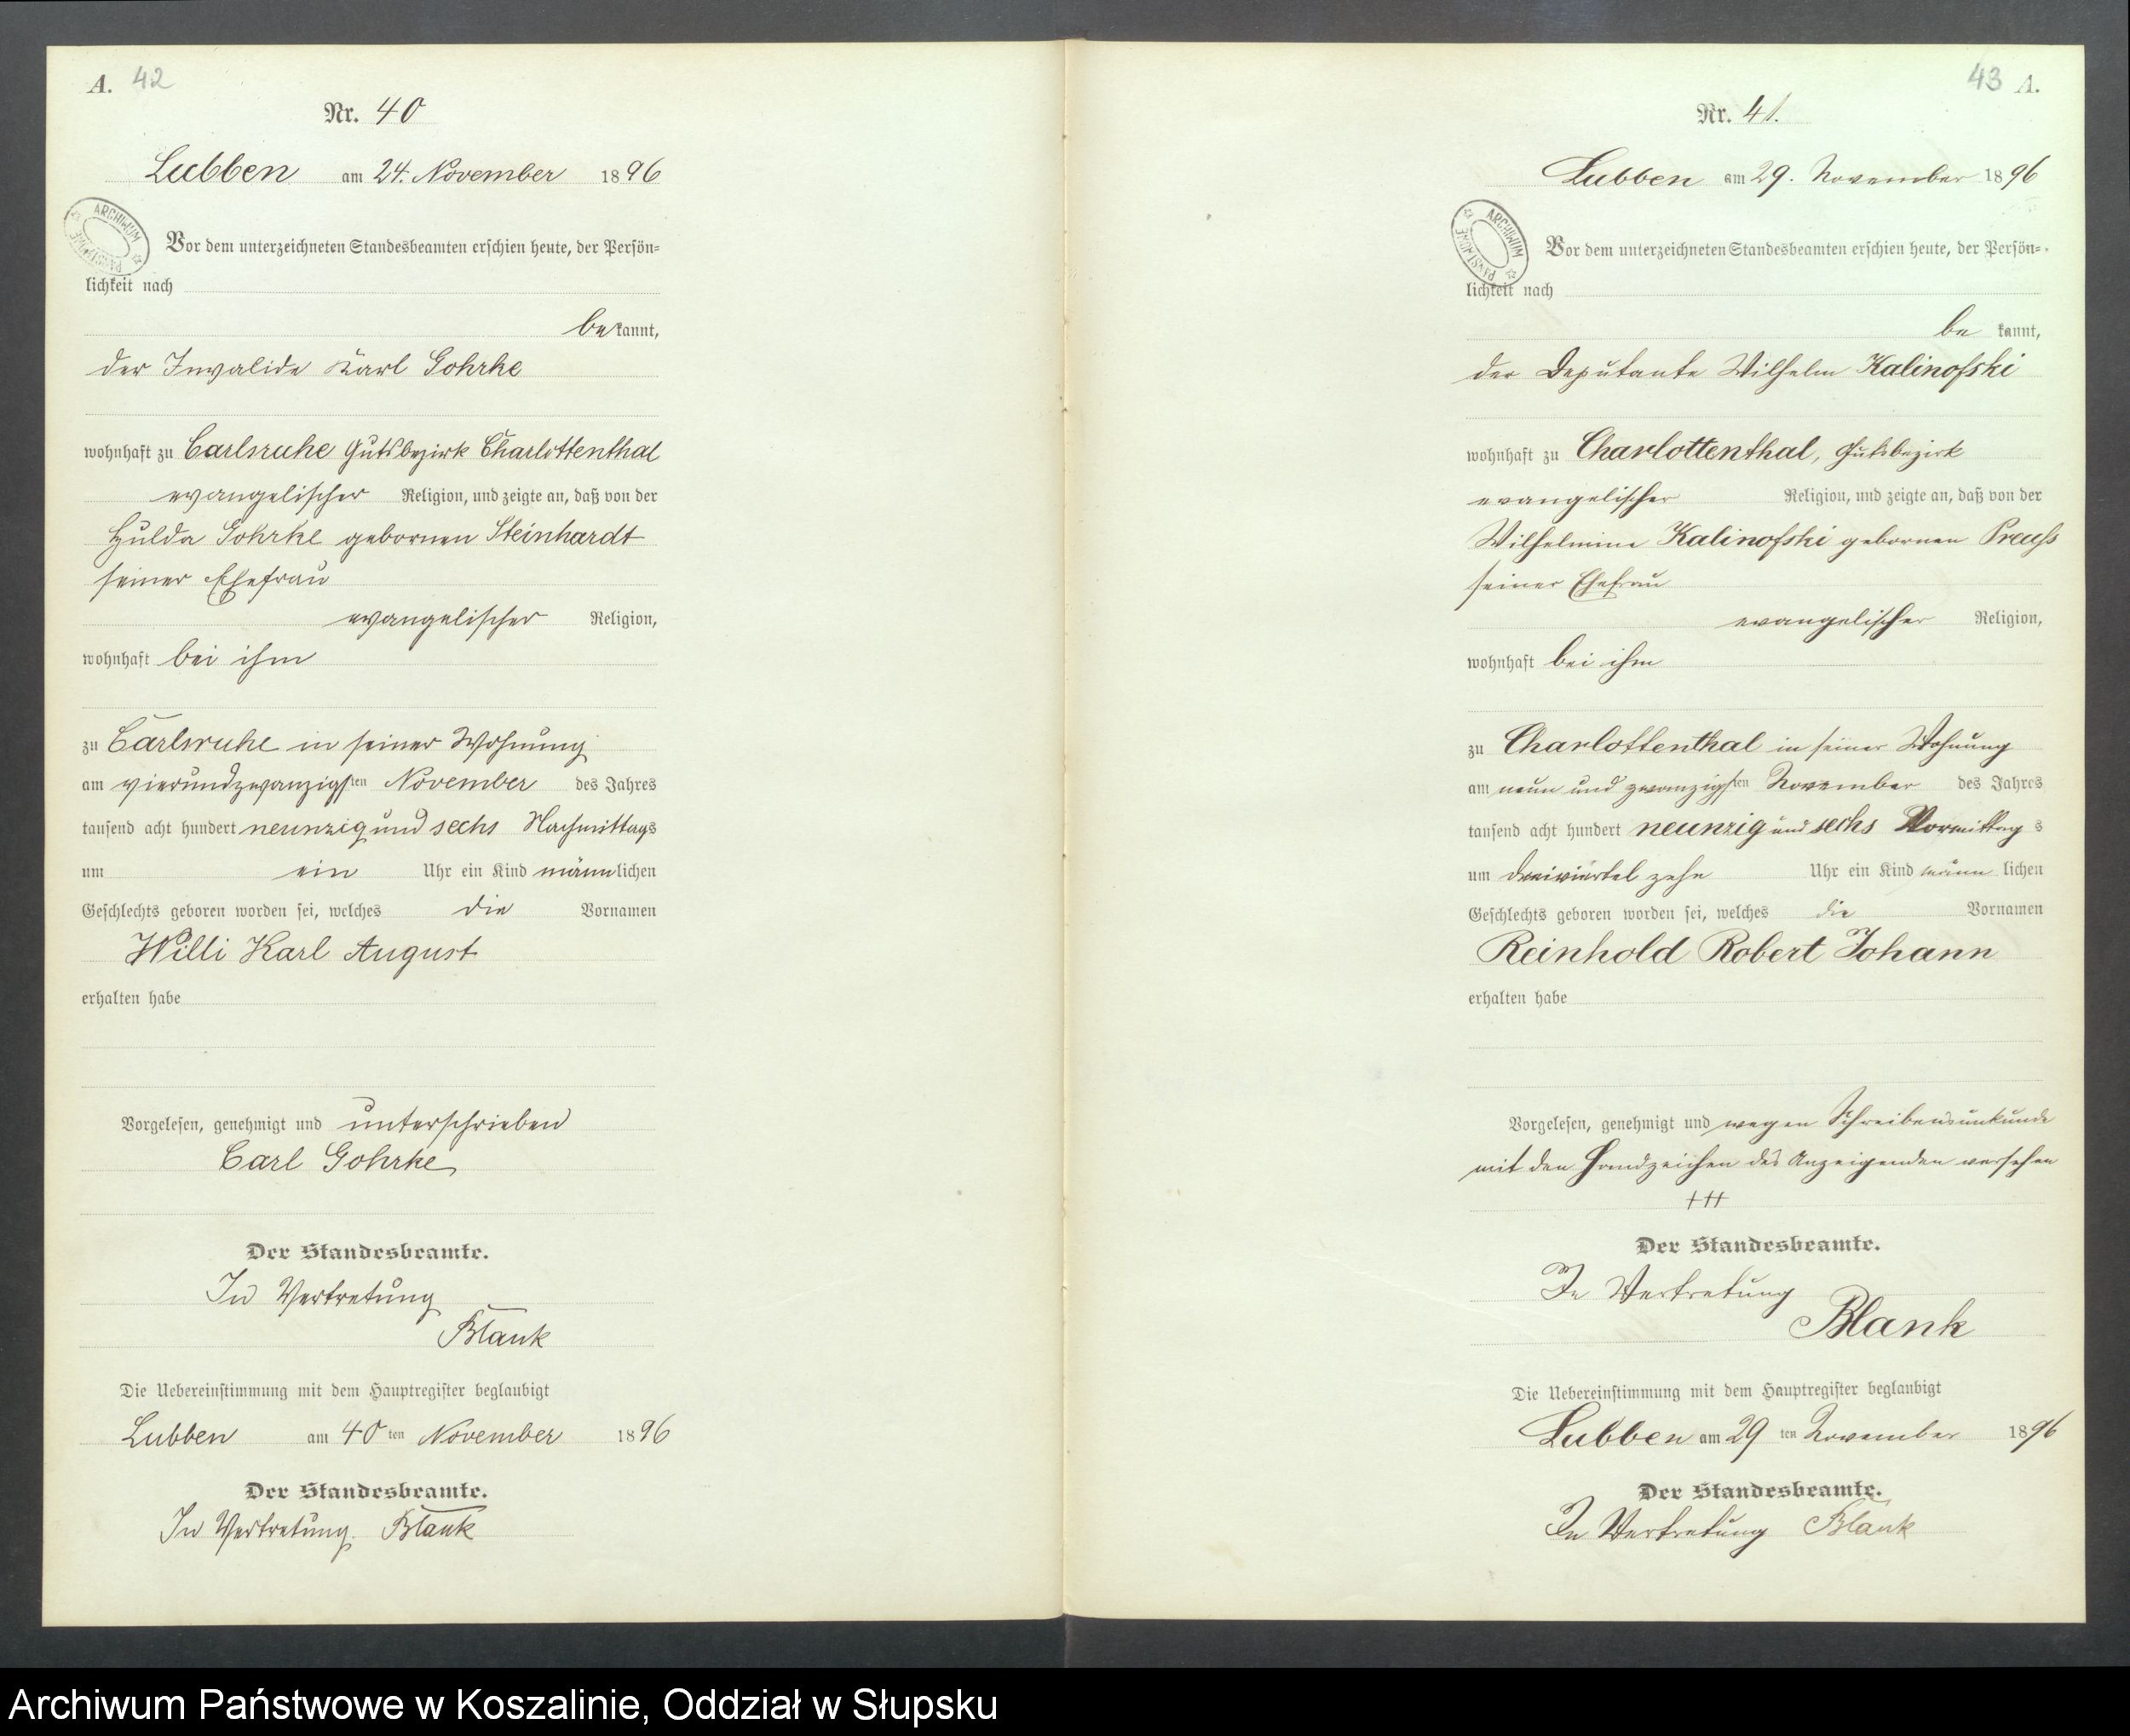 A. 42
Nr. 40
Lubben am 24. November 1896
ARCHIWUM PAŃSTWOWE
Vor dem unterzeichneten Standesbeamten erschien heute, der Persön=
lichkeit nach
bekannt,
der Invalide Karl Gohrke
wohnhaft zu Carlsruhe Gutsbezirk Charlottenthal
evangelischer Religion, und zeigte an, daß von der
Hulda Gohrke gebornen Steinhardt
seiner Ehefrau
evangelischer Religion,
wohnhaft bei ihm
zu Carlsruhe in seiner Wohnung
am vierundzwanzigsten November des Jahres
tausend acht hundert neunzig und sechs Nachmittags
um ein Uhr ein Kind männlichen
Geschlechts geboren worden sei, welches die Vornamen
Willi Karl August
erhalten habe
Vorgelesen, genehmigt und unterschrieben
Carl Gohrke
Der Standesbeamte.
In Vertretung
Blank
Die Uebereinstimmung mit dem Hauptregister beglaubigt
Lubben am 40ten November 1896
Der Standesbeamte.
In Vertretung. Blank
43 A.
Nr. 41.
Lubben am 29. November 1896
ARCHIWUM PAŃSTWOWE
Vor dem unterzeichneten Standesbeamten erschien heute, der Persön=
lichkeit nach
be kannt,
der Deputante Wilhelm Kalinofski
wohnhaft zu Charlottenthal, Gutsbezirk
evangelischer Religion, und zeigte an, daß von der
Wilhelmine Kalinofski gebornen Preuß
seiner Ehefrau
evangelischer Religion,
wohnhaft bei ihm
zu Charlottenthal in seiner Wohnung
am neun und zwanzigsten November des Jahres
tausend acht hundert neunzig und sechs Vormittag s
um dreiviertel zehn Uhr ein Kind männ lichen
Geschlechts geboren worden sei, welches die Vornamen
Reinhold Robert Johann
erhalten habe
Vorgelesen, genehmigt und wegen Schreibensunkunde
mit den Handzeichen des Anzeigenden versehen
+++
Der Standesbeamte.
In Vertretung
Blank
Die Uebereinstimmung mit dem Hauptregister beglaubigt
Lubben am 29 ten November 1896
Der Standesbeamte.
In Vertretung Blank
Archiwum Państwowe w Koszalinie, Oddział w Słupsku